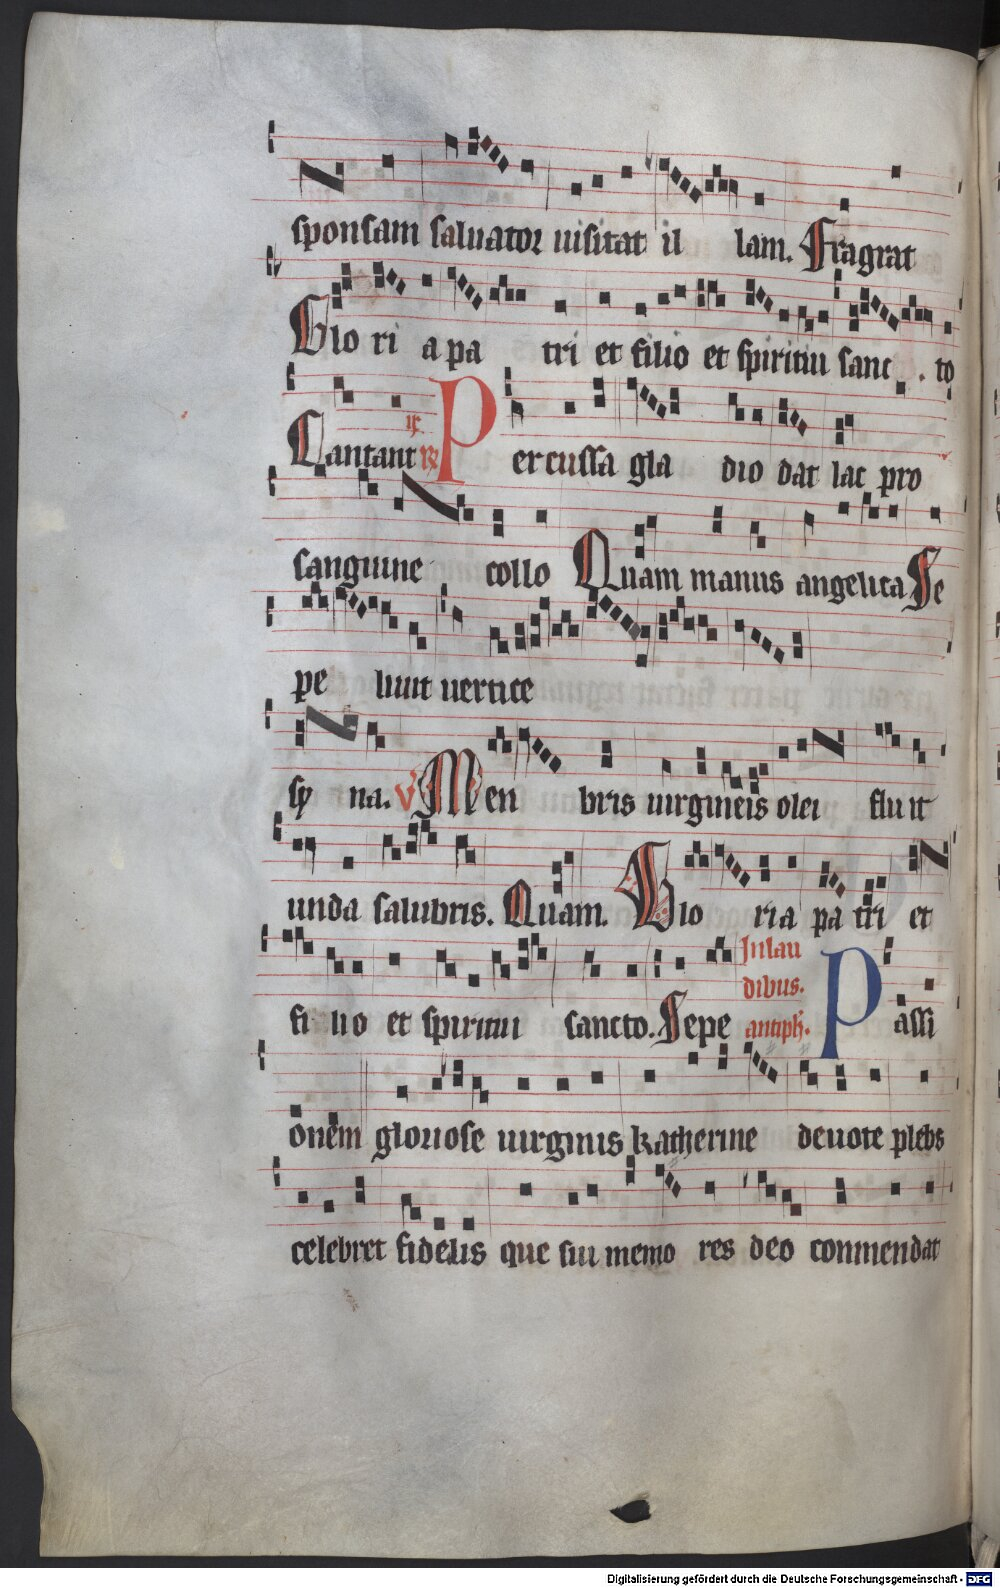 sponsam saluator uisitat il lam. Fragrat
Glo ri a pa tri et filio et spiritui sanc . to
Cantant ix. R Percussa gla dio dat lac pro
sanguine collo Quam manus angelica Se
pe liuit uertice
sy na. V Men bris uirgineis olei flu it
unda salubris. Quam. Glo ria pa tri et
fi lio et spiritui sancto. Sepe
In lau
dibus.
antiph. Passi
onem gloriose uirginis katherine deuote plebs
celebret fidelis que sui memo res deo commendat
Digitalisierung gefördert durch die Deutsche Forschungsgemeinschaft - DFG